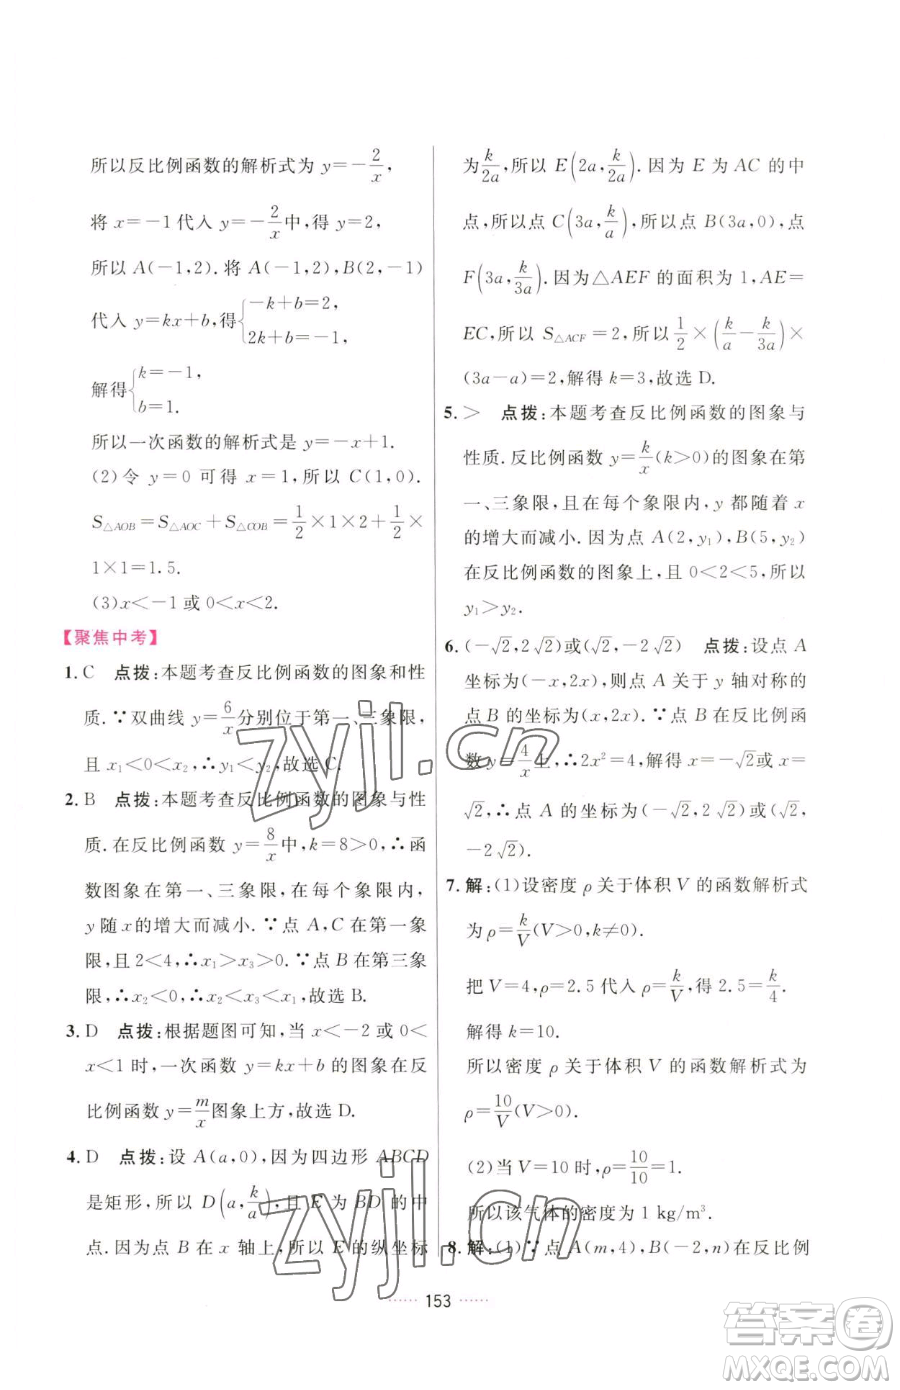 所以反比例函数的解析式为 y=-2/x,
将 x=-1 代入 y=-2/x 中,得 y=2,
所以 A(-1,2). 将 A(-1,2),B(2,-1)
代入 y=kx+b,得{-k+b=2, 2k+b=-1,
解得{k=-1, b=1.
所以一次函数的解析式是 y=-x+1.
(2)令 y=0 可得 x=1,所以 C(1,0).
S△AOB=S△AOC+S△COB=1/2×1×2+1/2×
1×1=1.5.
(3)x<-1 或 0<x<2.
【聚焦中考】
1. C 点拨:本题考查反比例函数的图象和性
质.∵双曲线 y=6/x 分别位于第一、三象限,
且 x₁<0<x₂,∴y₁<y₂,故选 C.
2. B 点拨:本题考查反比例函数的图象与性
质.在反比例函数 y=8/x 中,k=8>0,∴函
数图象在第一、三象限,在每个象限内,
y 随 x 的增大而减小.∵点 A,C 在第一象
限,且 2<4,∴x₁>x₃>0.∵点 B 在第三象
限,∴x₂<0,∴x₂<x₃<x₁,故选 B.
3. D 点拨:根据题图可知,当 x<-2 或 0<
x<1 时,一次函数 y=kx+b 的图象在反
比例函数 y=m/x 图象上方,故选 D.
4. D 点拨:设 A(a,0),因为四边形 ABCD
是矩形,所以 D(a,k/a),且 E 为 BD 的中
点.因为点 B 在 x 轴上,所以 E 的纵坐标
为 k/2a,所以 E(2a,k/2a). 因为 E 为 AC 的中
点,所以点 C(3a,k/a),所以点 B(3a,0),点
F(3a,k/3a). 因为△AEF 的面积为 1,AE=
EC,所以 S△ACF=2,所以 1/2×(k/a-k/3a)×
(3a-a)=2,解得 k=3,故选 D.
5. > 点拨:本题考查反比例函数的图象与
性质.反比例函数 y=k/x(k>0)的图象在第
一、三象限,且在每个象限内,y 都随着 x
的增大而减小.因为点 A(2,y₁),B(5,y₂)
在反比例函数的图象上,且 0<2<5,所以
y₁>y₂.
6. (-√2,2√2)或(√2,-2√2) 点拨:设点 A
坐标为(-x,2x),则点 A 关于 y 轴对称的
点 B 的坐标为(x,2x).∵点 B 在反比例函
数 y=4/x 上,∴2x²=4,解得 x=-√2或x=
√2,∴点 A 的坐标为(-√2,2√2)或(√2,
-2√2).
7. 解:(1)设密度 ρ 关于体积 V 的函数解析式
为 ρ=k/V(V>0,k≠0).
把 V=4,ρ=2.5 代入 ρ=k/V,得 2.5=k/4.
解得 k=10.
所以密度 ρ 关于体积 V 的函数解析式为
ρ=10/V(V>0).
(2)当 V=10 时,ρ=10/10=1.
所以该气体的密度为 1 kg/m³.
8. 解:(1)∵点 A(m,4),B(-2,n)在反比例
153
zyjl.cn
zyjl.cn
答案圈
MXQE.COM